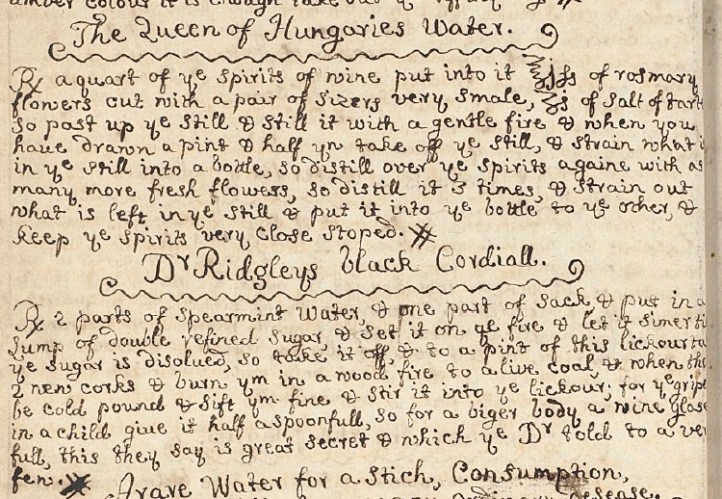 amber colour it is enough take out ye
The Queen of Hungaries Water.
℞ a quart of ye Spirits of wine put into it ℥jſs of rosmary
flowers cut with a pair of Sizers very Smale, ℥ſs of Salt of tart
So past up ye Still & Still it with a gentle fire & when you
have drawn a pint & half yn take off ye Still, & Strain what i
in ye Still into a bottle, so distill over ye Spirits againe with as
many more fresh flowers, so distill it 3 times, & Strain out
what is left in ye Still & put it into ye bottle to ye other, &
Keep ye Spirits very Close Stoped.
Dr Ridgleys black Cordiall.
℞ 2 parts of Spearmint Water, & one part of Sack & put in a
Lump of double refined Sugar, & Set it on ye fire & let it Simer ti
ye Sugar is disolued, so take it off & to a pint of this lickour ta
2 new corks & burn ym in a wood fire to a live coal, & when the
be cold pound & Sift ym fine & Stir it into ye lickour; for ye gripe
in a child giue it half a spoonfull, so for a biger body a wine glase
full, this they Say is great Secret & which ye Dr told to a ver
fen.
A rare Water for a Stich, Consumption,